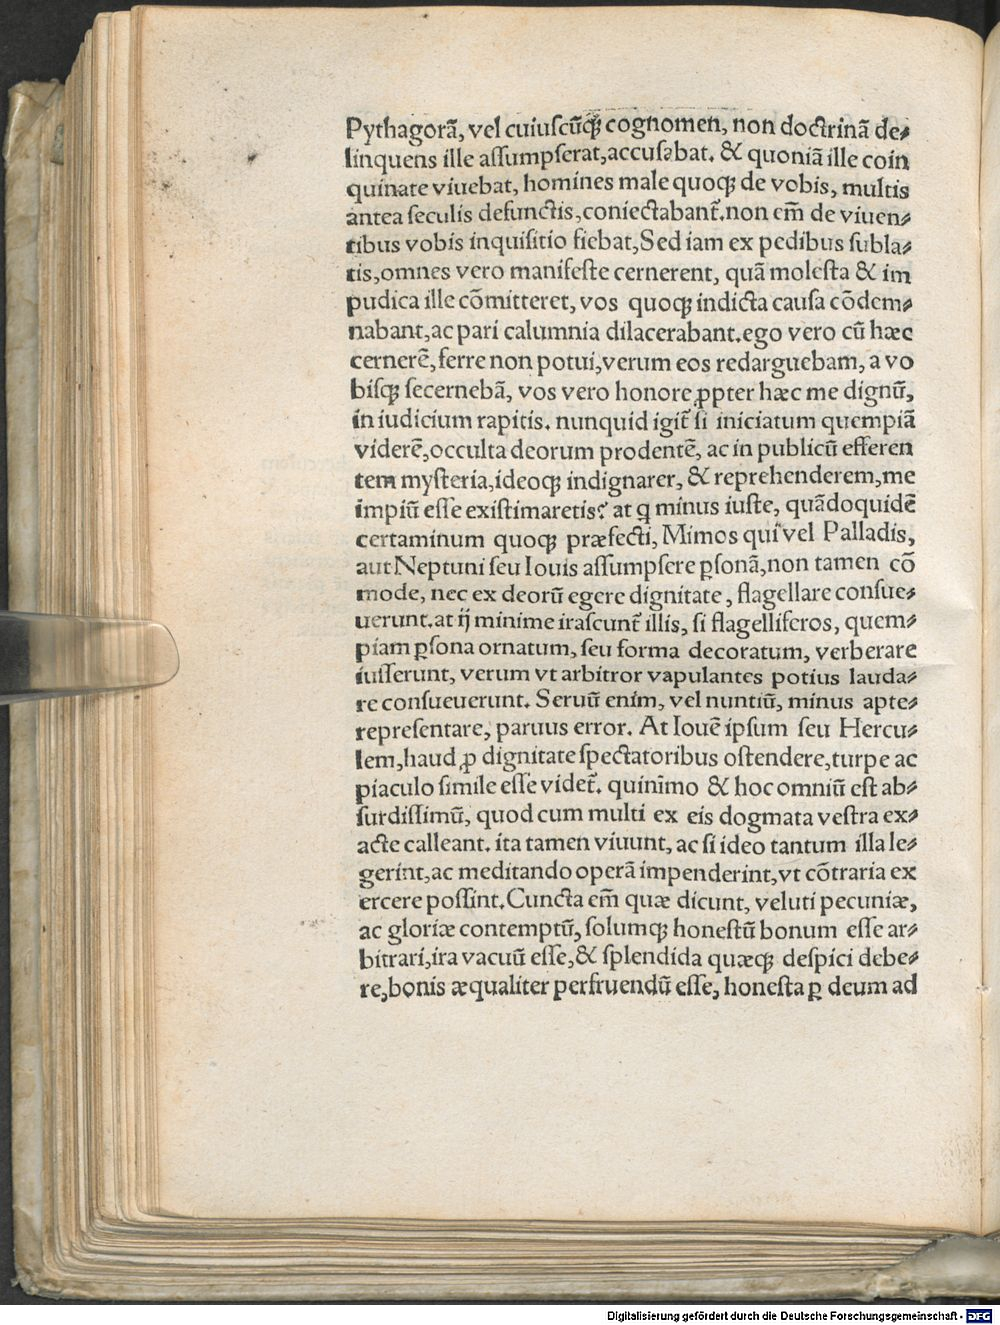 Pythagorã, vel cuiuscũqꝫ cognomen, non doctrinã de⸗
linquens ille assumpserat,accusabat. & quoniã ille coin
quinate viuebat, homines male quoqꝫ de vobis, multis
antea seculis defunctis,coniectabant̃.non em̃ de viuen⸗
tibus vobis inquisitio fiebat,Sed iam ex pedibus subla⸗
tis,omnes vero manifeste cernerent, quã molesta & im
pudica ille cõmitteret, vos quoqꝫ indicta causa cõdem⸗
nabant,ac pari calumnia dilacerabant.ego vero cũ hæc
cernerẽ,ferre non potui,verum eos redarguebam, a vo
bisqꝫ secernebã, vos vero honore ꝓpter hæc me dignũ,
in iudicium rapitis. nunquid igit̃ si iniciatum quempiã
viderẽ,occulta deorum prodentẽ, ac in publicũ efferen
tem mysteria,ideoqꝫ indignarer, & reprehenderem,me
impiũ esse existimaretis? at ꝗ minus iuste, quãdoquidẽ
certaminum quoqꝫ præfecti, Mimos qui vel Palladis,
aut Neptuni seu Iouis assumpsere ꝑsonã,non tamen cõ
mode, nec ex deorũ egere dignitate, flagellare consue⸗
uerunt.at ij minime irascunt̃ illis, si flagelliferos, quem⸗
piam ꝑsona ornatum, seu forma decoratum, verberare
iusserunt, verum vt arbitror vapulantes potius lauda⸗
re consueuerunt. Seruũ enim, vel nuntiũ, minus apte⸗
representare, paruus error. At Iouẽ ipsum seu Hercu⸗
lem,haud ꝓ dignitate spectatoribus ostendere,turpe ac
piaculo simile esse videt̃. quinimo & hoc omniũ est ab⸗
surdissimũ, quod cum multi ex eis dogmata vestra ex⸗
acte calleant. ita tamen viuunt, ac si ideo tantum illa le⸗
gerint,ac meditando operã impenderint,vt cõtraria ex
ercere possint.Cuncta em̃ quæ dicunt, veluti pecuniæ,
ac gloriæ contemptũ, solumqꝫ honestũ bonum esse ar⸗
bitrari,ira vacuũ esse,& splendida quæqꝫ despici debe⸗
re,bonis æqualiter perfruendũ esse, honesta ꝑ deum ad
Digitalisierung gefördert durch die Deutsche Forschungsgemeinschaft - DFG